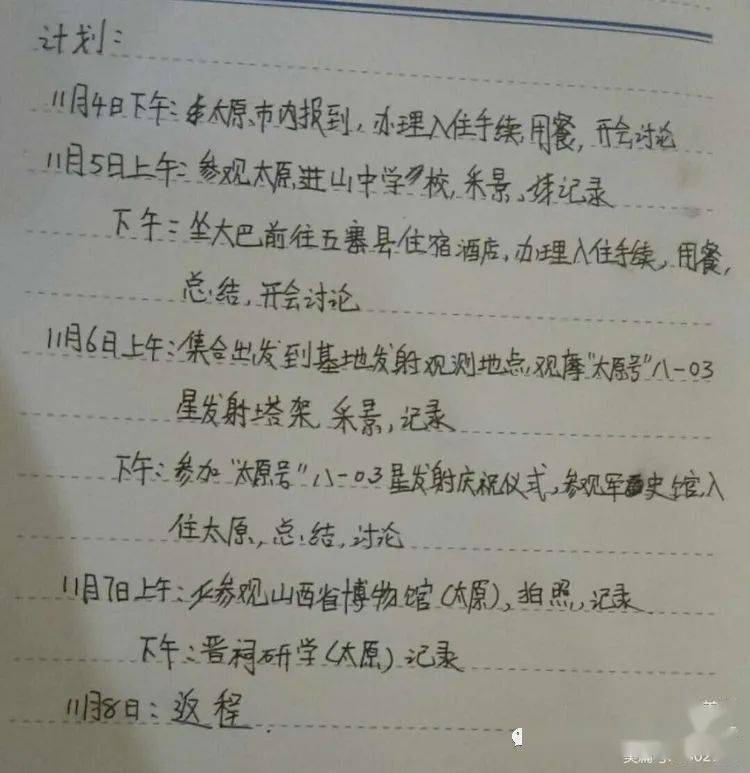 计划：
11月4日下午：太原市内报到，办理入住手续，用餐，开会讨论
11月5日上午：参观太原进山中学校，采景、记录
下午：坐大巴前往五寨县住宿酒店，办理入住手续，用餐，
总结，开会讨论
11月6日上午：集合出发到基地发射观测地点，观摩“太原号”八一03
星发射塔架，采景，记录
下午：参加“太原号”八一03星发射庆祝仪式，参观军史馆，入
住太原，总结，讨论
11月7日上午：参观山西省博物馆（太原），拍照，记录
下午：晋祠研学（太原）记录
11月8日：返程